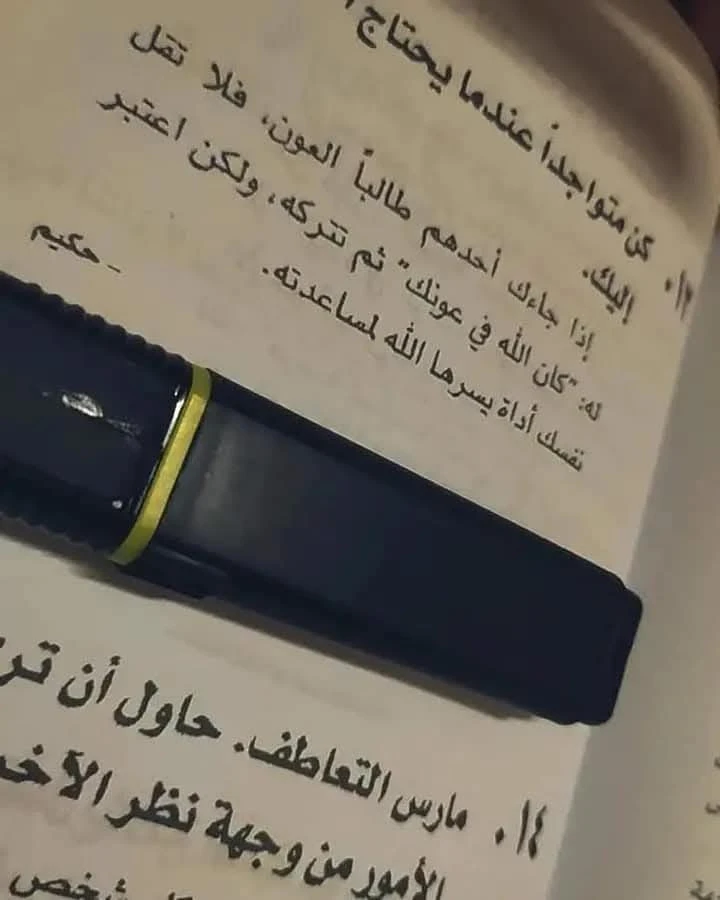 ١٣. كن متواجداً عندما يحتاج
إليك.
إذا جاءك أحدهم طالباً العون، فلا تقل
له: "كان الله في عونك" ثم تتركه، ولكن اعتبر
نفسك أداة يسرها الله لمساعدته.
- حكيم
١٤. مارس التعاطف. حاول أن
الأمور من وجهة نظر
شخص